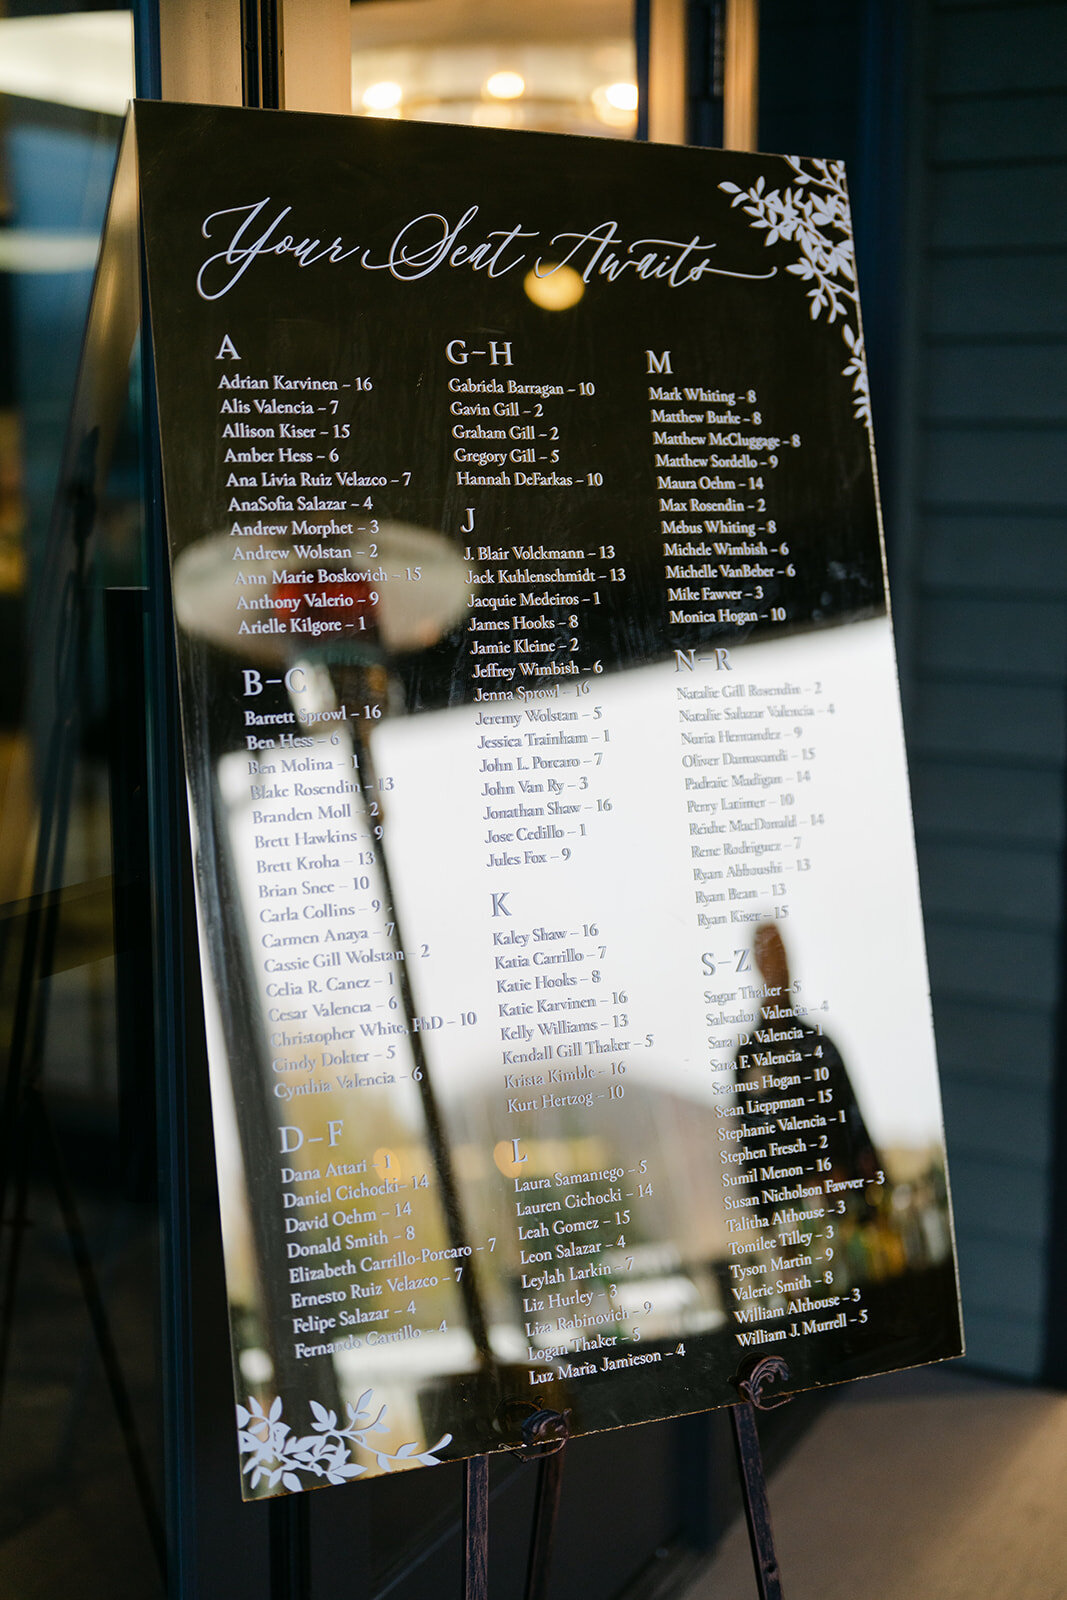 Your Seat Awaits
A
Adrian Karvinen – 16
Alis Valencia – 7
Allison Kiser – 15
Amber Hess – 6
Ana Livia Ruiz Velazco – 7
AnaSofia Salazar – 4
Andrew Morphet – 3
Andrew Wolstan – 2
Ann Marie Boskovich – 15
Anthony Valerio – 9
Arielle Kilgore – 1
B–C
Barrett Sprowl – 16
Ben Hess – 6
Ben Molina – 1
Blake Rosendin – 13
Branden Moll – 2
Brett Hawkins – 9
Brett Kroha – 13
Brian Snee – 10
Carla Collins – 9
Carmen Anaya – 7
Cassie Gill Wolstan – 2
Celia R. Canez – 1
Cesar Valencia – 6
Christopher White, PhD – 10
Cindy Dokter – 5
Cynthia Valencia – 6
D–F
Dana Attari – 1
Daniel Cichocki – 14
David Oehm – 14
Donald Smith – 8
Elizabeth Carrillo-Porcaro – 7
Ernesto Ruiz Velazco – 7
Felipe Salazar – 4
Fernando Carrillo – 4
G–H
Gabriela Barragan – 10
Gavin Gill – 2
Graham Gill – 2
Gregory Gill – 5
Hannah DeFarkas – 10
J
J. Blair Volckmann – 13
Jack Kuhlenschmidt – 13
Jacquie Medeiros – 1
James Hooks – 8
Jamie Kleine – 2
Jeffrey Wimbish – 6
Jenna Sprowl – 16
Jeremy Wolstan – 5
Jessica Trainham – 1
John L. Porcaro – 7
John Van Ry – 3
Jonathan Shaw – 16
Jose Cedillo – 1
Jules Fox – 9
K
Kaley Shaw – 16
Katia Carrillo – 7
Katie Hooks – 8
Katie Karvinen – 16
Kelly Williams – 13
Kendall Gill Thaker – 5
Krista Kimble – 16
Kurt Hertzog – 10
L
Laura Samaniego – 5
Lauren Cichocki – 14
Leah Gomez – 15
Leon Salazar – 4
Leylah Larkin – 7
Liz Hurley – 3
Liza Rabinovich – 9
Logan Thaker – 5
Luz Maria Jamieson – 4
M
Mark Whiting – 8
Matthew Burke – 8
Matthew McCluggage – 8
Matthew Sordello – 9
Maura Oehm – 14
Max Rosendin – 2
Mebus Whiting – 8
Michele Wimbish – 6
Michelle VanBeber – 6
Mike Fawver – 3
Monica Hogan – 10
N–R
Natalie Gill Rosendin – 2
Natalie Salazar Valencia – 4
Nuria Hernandez – 9
Oliver Damavandi – 15
Padraic Madigan – 14
Perry Latimer – 10
Reidie MacDonald – 14
Rene Rodriguez – 7
Ryan Abboushi – 13
Ryan Bean – 13
Ryan Kiser – 15
S–Z
Sagar Thaker – 5
Salvador Valencia – 4
Sara D. Valencia – 1
Sara F. Valencia – 4
Seamus Hogan – 10
Sean Lieppman – 15
Stephanie Valencia – 1
Stephen Fresch – 2
Sumil Menon – 16
Susan Nicholson Fawver – 3
Talitha Althouse – 3
Tomilee Tilley – 3
Tyson Martin – 9
Valerie Smith – 8
William Althouse – 3
William J. Murrell – 5